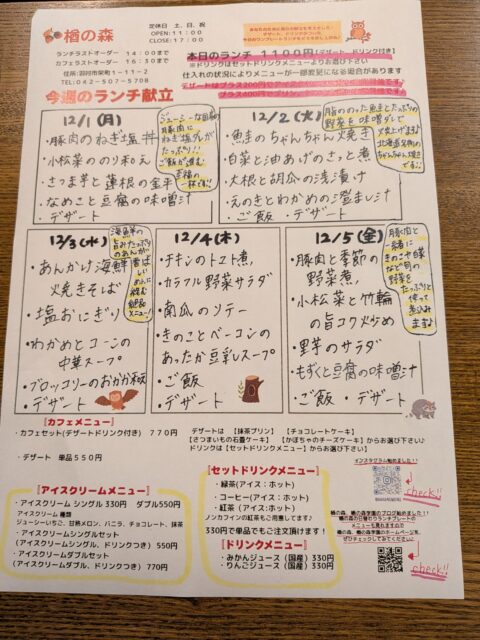 楢の森
定休日 土、日、祝
OPEN:11:00
CLOSE:17:00
ランチラストオーダー 14:00まで
カフェラストオーダー 16:30まで
住所:羽村市栄町1-11-2
TEL:042-507-5708
本日のランチ 1100円【デザート、ドリンク付き】
※ドリンクはセットドリンクメニューよりお選び下さい
仕入れの状況によりメニューが一部変更になる場合があります
今週のランチ献立
12/1(月)
・豚肉のねぎ塩丼
・小松菜ののり和え
・さつま芋と蓮根の金平
・なめこと豆腐の味噌汁
・デザート
12/2(火)
・鮭のちゃんちゃん焼き
・白菜と油あげのさっと煮
・大根と胡瓜の浅漬け
・えのきとわかめの澄まし汁
・ご飯 ・デザート
12/3(水)
・あんかけ海鮮焼きそば
・塩おにぎり
・わかめとコーンの
中華スープ
・ブロッコリーのおかか和え
・デザート
12/4(木)
・チキンのトマト煮
・カラフル野菜サラダ
・南瓜のソテー
・きのことベーコンの
あったか豆乳スープ
・ご飯
・デザート
12/5(金)
・豚肉と季節の
野菜煮
・小松菜と竹輪
の旨コク炒め
・里芋のサラダ
・もずくと豆腐の味噌汁
・ご飯 ・デザート
豚肉と
一緒に
きのこや白菜
など旬の
野菜を
たっぷりと
使って
煮込み
ます♪
【カフェメニュー】
・カフェセット(デザートドリンク付き) 770円
デザートは 【抹茶プリン】 【チョコレートケーキ】
【さつまいもの石畳ケーキ】 【かぼちゃのチーズケーキ】からお選び下さい♪
ドリンクは【セットドリンクメニュー】からお選び下さい♪
・デザート 単品550円
【アイスクリームメニュー】
・アイスクリーム シングル330円 ダブル550円
アイスクリーム 種類
ジューシーいちご、甘熟メロン、バニラ、チョコレート、抹茶
・アイスクリームシングルセット
(アイスクリームシングル、ドリンクつき) 550円
・アイスクリームダブルセット
(アイスクリームダブル、ドリンクつき) 770円
【セットドリンクメニュー】
・緑茶(アイス:ホット)
・コーヒー(アイス:ホット)
・紅茶 (アイス:ホット)
ノンカフェインの紅茶もご用意してます♪
330円で単品でもご注文頂けます!
【ドリンクメニュー】
・みかんジュース (国産) 330円
・りんごジュース (国産) 330円
インスタグラム始めました!!
check!!
楢の森、楢の森学園のブログ始めました!!
check!!